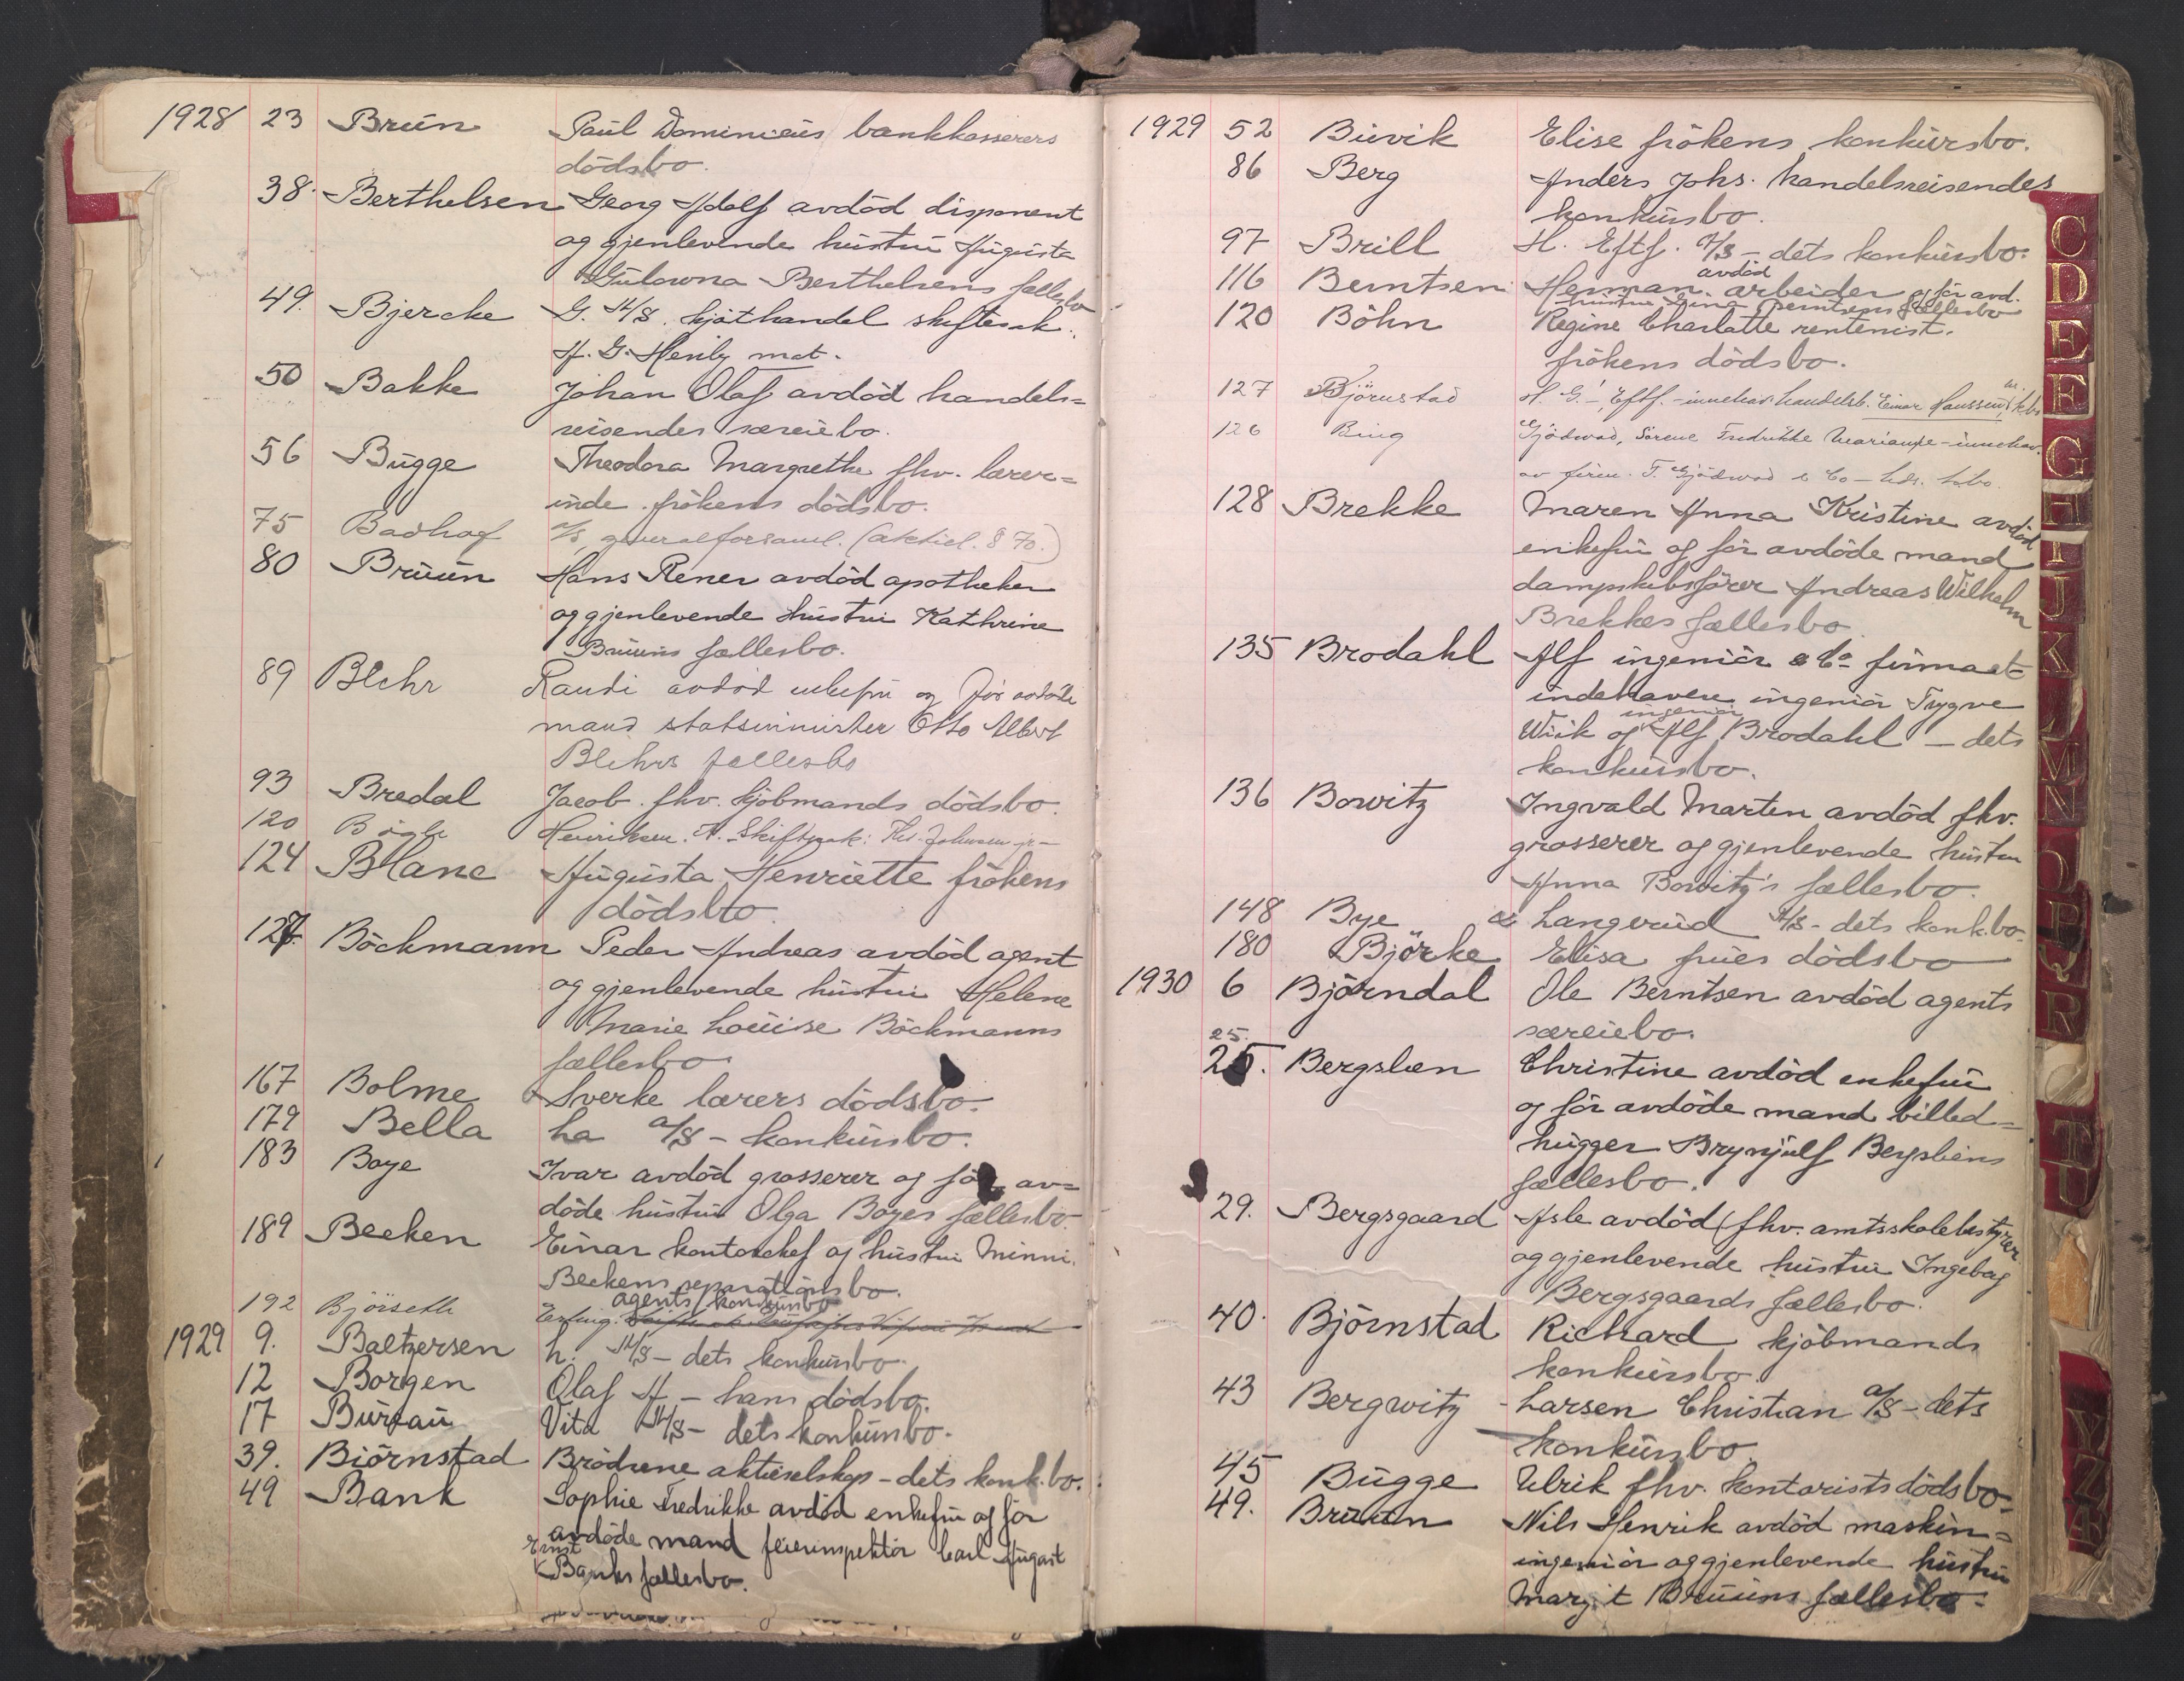 1928 23 Bruun Paul Dominicus bankkasserers
dödsbo.
38. Berthelsen Georg Adolf avdöd disponent
og gjenlevende hustru Augusta
Berthelsens fællesbo
49. Bjercke G. A/S. kjöthandel skiftesak.
A. G. mot.
50 Bakke Johan Olaf avdöd handels=
reisendes særeiebo.
56 Bugge Theodora Margrethe fhv. lærer=
inde frökens dödsbo.
75 Badhag A/S generalforsaml. (aktiel. § 70.)
80 Bruun Hans Rener avdöd apotheker
og gjenlevende hustru Kathrine
Bruuns fællesbo.
89 Blehr Randi avdöd enkefru og för avdöde
mand statsminister Otto Albert
Blehrs fællesbo
93 Bredal Jacob fhv. kjöbmands dödsbo.
120 Henriksen. A. Skiftesak: Johnsen jr -
124 Blanc Augusta Henriette frökens
dödsbo.
127. Böckmann Peder Andreas avdöd agent
og gjenlevende hustru Helene
Marie Louise Böckmanns
fællesbo
167 Bolme Sverke lærers dödsbo.
179 Bella La A/S - konkursbo.
183 Boye Ivar avdöd grosserer og för av=
döde hustru Olga Boyes fællesbo.
189 Becken Einar kontorchef og hustru Minni
Beckens separationsbo.
agents konkursbo
192 Bjöiseth Erling
1929 9. Baltzersen h. A/S - dets konkursbo.
12 Borgen Olaf A - hans dödsbo.
17 Bureau Vita A/S - dets konkursbo.
39. Björnstad Brödrene aktieselskap - dets konk.bo.
49 Bank Sophie Fredrikke avdöd enkefru og för
avdöde mand feierinspektör Carl August
Ernst
Banks fællesbo.
1929 52 Buvik Elise frökens konkursbo.
86 Berg Anders Johs. handelsreisendes
konkursbo.
97 Brill H. Eftf. A/S - dets konkursbo.
avdöd
116 Berntsen Herman arbeider og för avd.
hustru Lina Berntsens fællesbo
120 Böhn Regine Charlotte rentenist.
frökens dödsbo.
127 Björnstad H. G. -, Eftf. - innehav. handelsb. Einar Hanssens k.bo
126 Bing Gjödwad, Sörene Fredrikke Mariane - innehav.
av firm. F. Gjödwad & Co -
128 Brekke Maren Anna Kristine avdöd
enkefru og för avdöde mand
dampskibsförer Andreas Wilhelm
Brekkes fællesbo.
135 Brodahl Alf ingeniör & Co firmaet
indehavere ingeniör Trygve
ingeniör
Wiik og Alf Brodahl - dets
konkursbo.
136 Bowitz Ingvald Martin avdöd fhv.
grosserer og gjenlevende hustru
Anna Bowitz's fællesbo.
148 Bye & Langerud A/S - dets konk.bo.
180 Björke Elisa frues dödsbo
1930 6 Björndal Ole Berntsen avdöd agents
særeiebo.
25.
25. Bergslien Christine avdöd enkefru
og för avdöde mand billed=
hugger Brynjulf Bergsliens
fællesbo.
29. Bergsgaard Asle avdöd fhv. amtsskolebestyrer
og gjenlevende hustru Ingeborg
Bergsgaards fællesbo.
40. Björnstad Richard kjöbmands
konkursbo.
43 Bergwitz - Larsen Christian A/S - dets
konkursbo
45 Bugge Ulrik fhv. kontorists dödsbo.
49. Bruun Nils Henrik avdöd maskin=
ingeniör og gjenlevende hustru
Margit Bruuns fællesbo.
C
D
E
F
G
H
I
J
K
M
N
O
P
Q
R
T
U
Y
Z
Æ